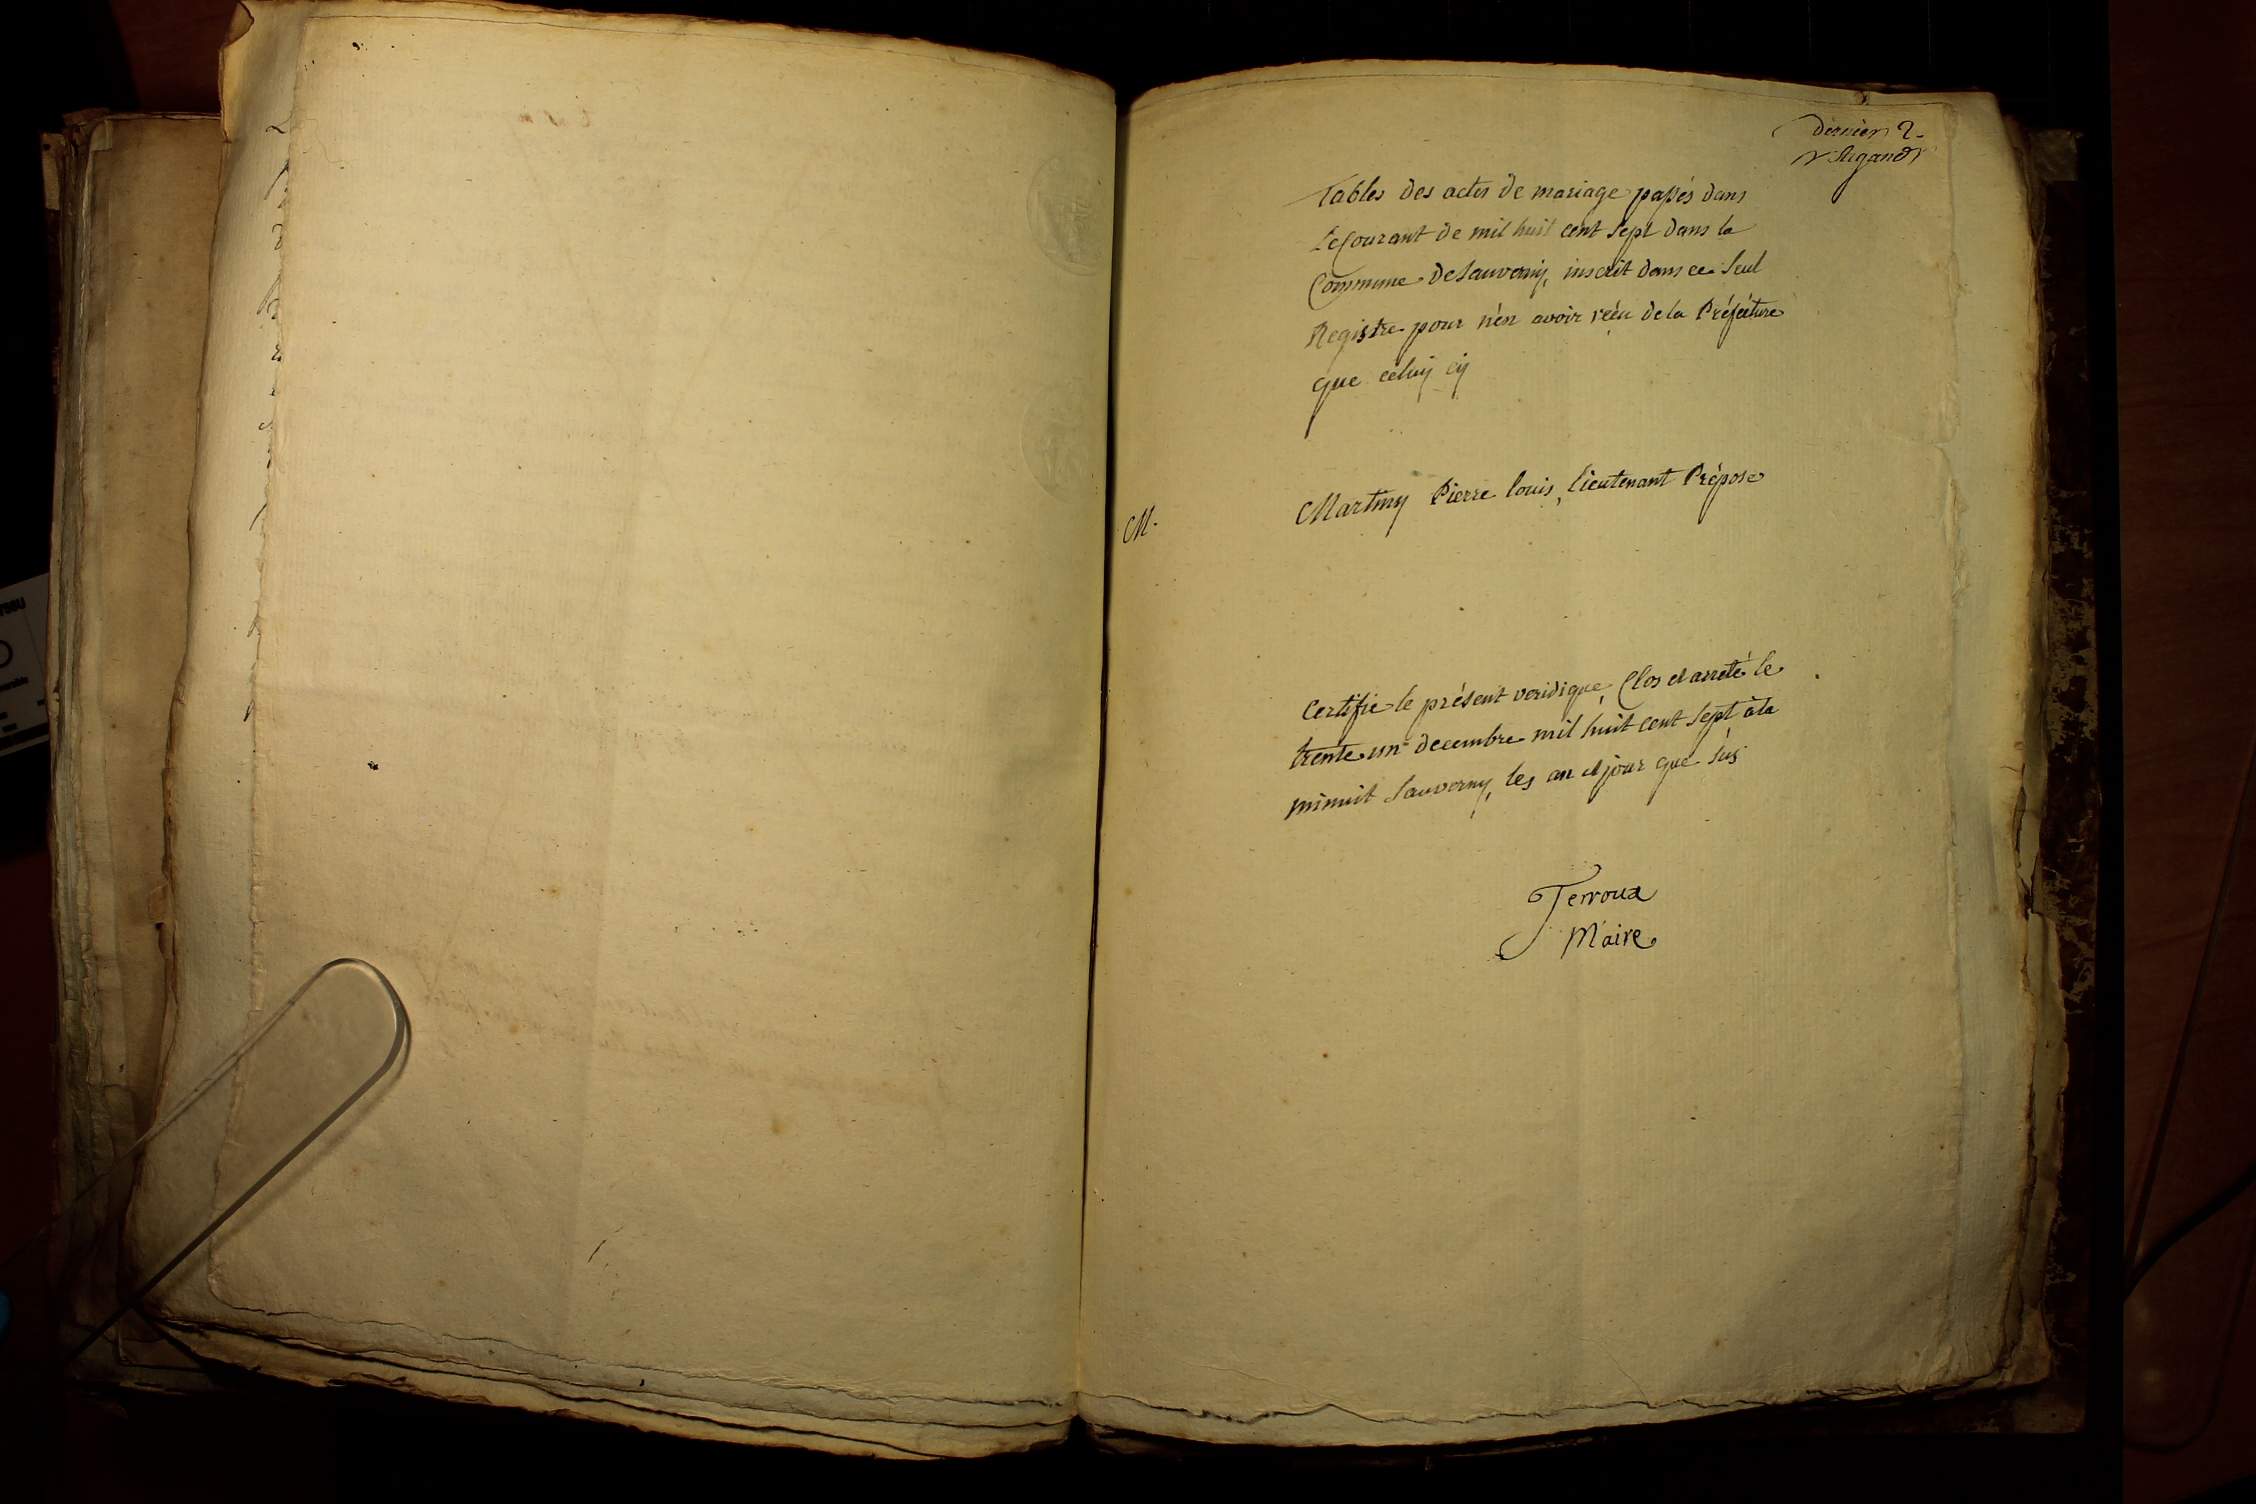 dernier 2.
Tables des actes de mariage passés dans
Le Courant de mil huit cent sept dans la
Commune de Sauverny, inscrit dans ce seul
Registre pour n'én avoir réçu de la Préfécture
que celuij cij
M. Martiny Pierre louis, lieutenant Préposé
Certifie le présent veridique, Clos et arreté le
trente un decembre mil huit cent sept à la
minuit Sauverny, les an et jour que sus
Terroux
Maire